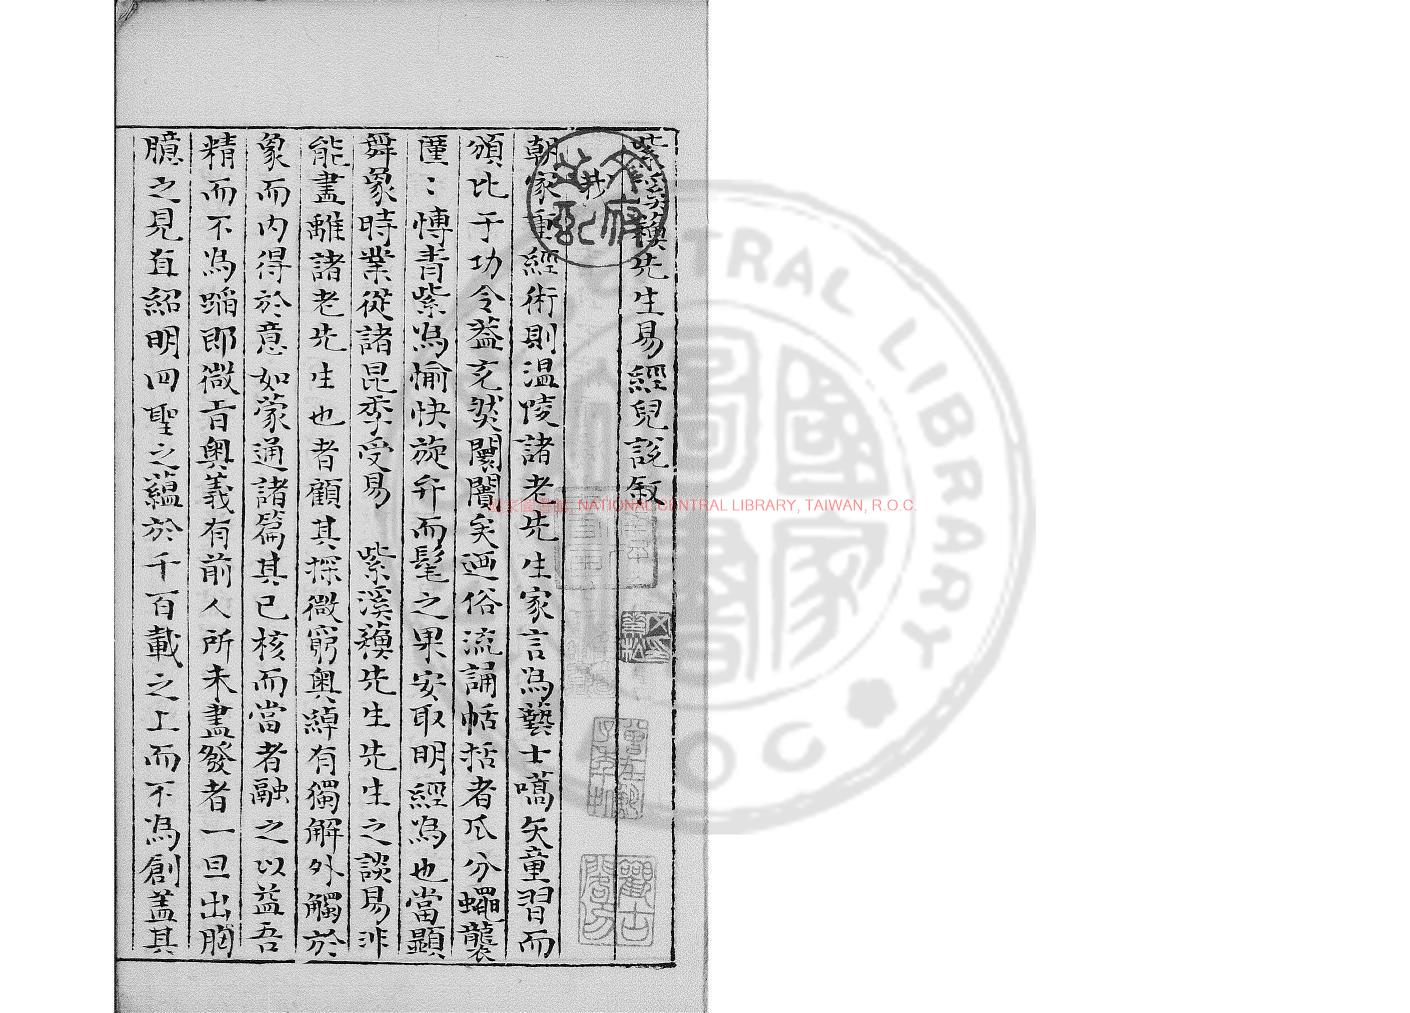 紫溪蘓先生易經兒說叙
我
朝家重經術則温陵諸老先生家言為藝士嚆矢童習而
頒比于功令益充然闠闠矣迺俗流誦帖括者瓜分蠅襲
僅〻慱青紫為愉快旋弁而髦之果安取明經為也當顯
舞象時業從諸昆季受易 紫溪蘓先生先生之談易非
能盡離諸老先生也者顧其探微窮奥綽有獨解外觸於
象而内得於意如蒙通諸篇其已核而當者融之以益吾
精而不為蹈即微言奥義有前人所未盡發者一旦出胸
臆之見直紹明四聖之蘊於千百載之上而不為創盖其
國家圖書館, NATIONAL CENTRAL LIBRARY, TAIWAN, R.O.C.
CENTRAL LIBRARY